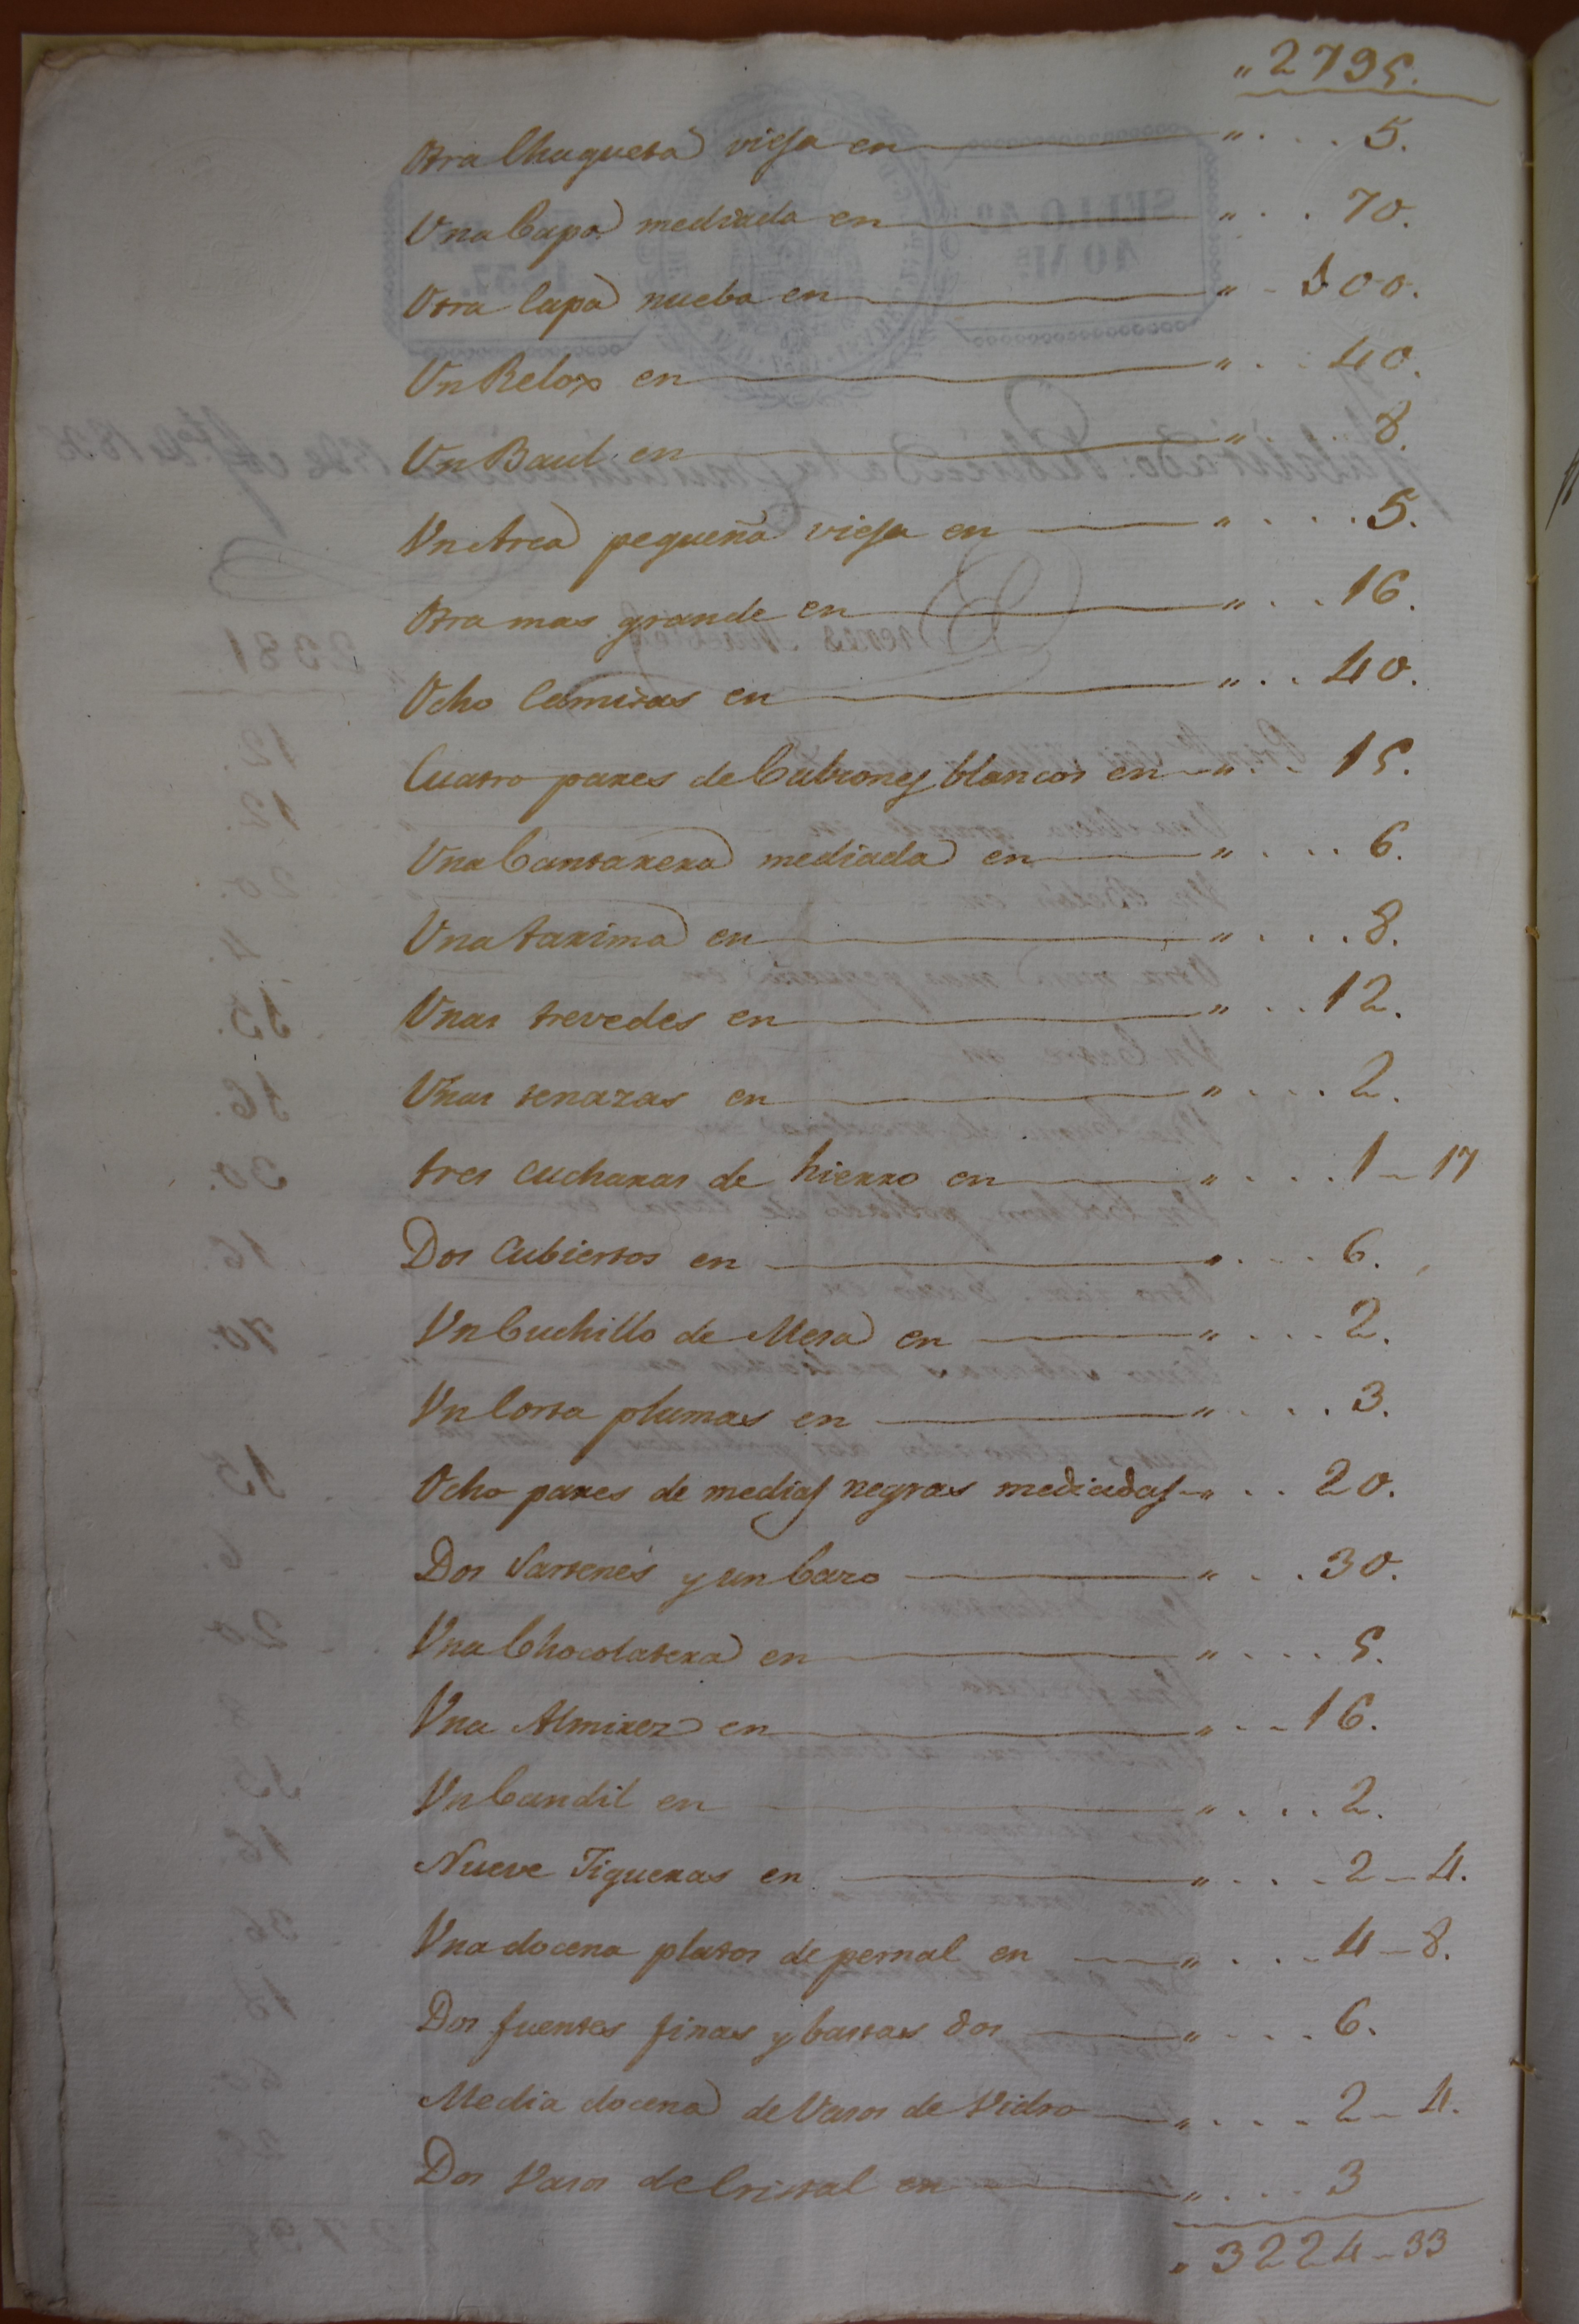 " 2795.
Otra Chaqueta vieja en " . . . 5.
Vna Capa mediada en " . . 70.
Otra Capa nueba en " - 100.
Vn Relox en " . . 40.
Vn Baul en " 8.
Vn Arca pequeña vieja en " . . . . 5.
Otra mas grande en " . . . 16.
Ocho Camisas en " . . . 40.
Cuatro pares de Calzones blancos en " . . 15.
Vna Cantarera mediada en " . . . . 6.
Vna tarima en " . . . . 8.
Vnas trevedes en " . . . 12.
Vnas tenazas en " . . . . 2.
tres cucharas de hierro en " . . . . 1 - 17
Dos Cubiertos en " . . . . 6.
Vn Cuchillo de Mesa en " . . . . 2.
Vn Corta plumas en " . . . . 3.
Ocho pares de medias negras mediadas " . . 20.
Dos Sartenes y un Cazo " . . . 30.
Vna Chocolatera en " . . . . 5.
Vna Almirez en " . - - 16.
Vn Candil en " . . . . 2.
Nueve Jigueras en " . . . - 2 - 4.
Vna docena platos de pernal en " . . . - 4 - 8.
Dos fuentes finas y bastas dos " . . . . 6.
Media docena de Vasos de Vidro " . . . - 2 - 4.
Dos Vasos de Cristal en " . . . . 3
" 3224 - 33